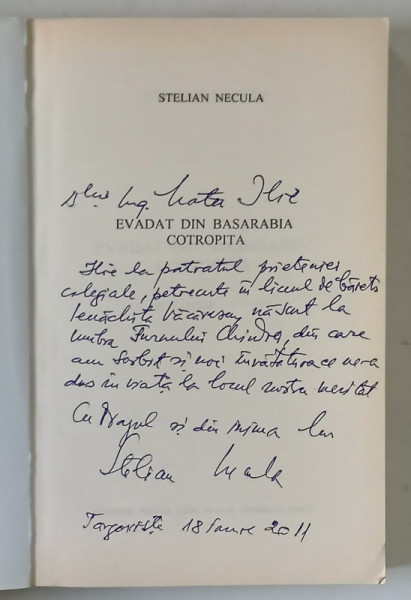 STELIAN NECULA
Dlui Ing. Matei Ilie
EVADAT DIN BASARABIA
COTROPITA
Ilie la patratul prieteniei
colegiale, petrecute în liceul de băieți
Ienăchiță Văcărescu născut la
umbra Turnului Chindiei, din care
am sorbit și noi învățătura ce ne-a
dus în viață la locul nostru meritat
Cu Dragul și din inima lui
Stelian Necula
Targoviște 18 Iunie 2011